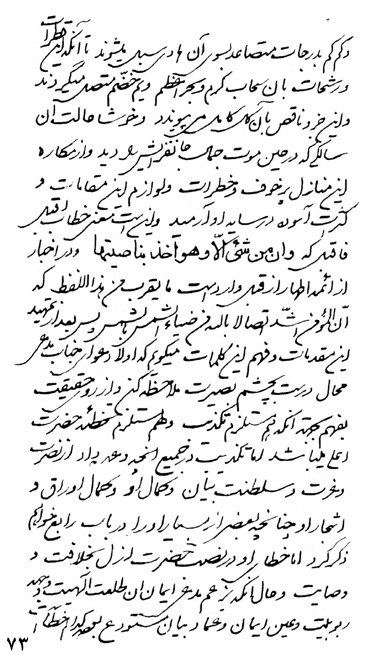 و کم کم بدرجات متصاعد بسوی آن
و رشحات بان سحاب کرم و بحر اعظم و یم خضم متصل میگردند
و این جزو ناقص بآن کل کامل می پیوندد و خوشا حالت آن
سالکی که در حین موت جمال جانفزایش دید و از مکاره
این منازل پر خوف و خطرات و لوازم این مقامات و
کثرت آسوده در سایه او آرمید و این است معنی خطاب
که و ان من شئی الا و هو آخذ بناصیتها و در اخبار
از ائمه اطهار از قبل وارد است ما یقرب من هذا اللفظ که
انّ المؤمن اشدّ اتصالا بالله من ضیاء الشمس بالشمس پس بعد از تمهید
این مقدمات و فهم این کلمات میگویم که اولا دعوای جناب مدعی
محال درست بچشم بصیرت ملاحظه کن و از روی حقیقت
بفهم بجهة آنکه هم مستلزم تکذیب و هم مستلزم تخطئه حضرت
اعلی میباشد اما تکذیب در جمیع آنچه وعده داد از نصرت
و عزت و سلطنت بیان و کمال او و کمال اوراق و
اثمار او چنانچه بعضی از بسیار او را در باب رابع خواهم
ذکر کرد اما خطای او در نصب حضرت ازل بخلافت و
وصایت و حال آنکه بزعم مدعی ایمان ان طلعت الهیت و
ربوبیت و عین ایمان و عماد بیان مستودع بود کدام خطا
۷۳